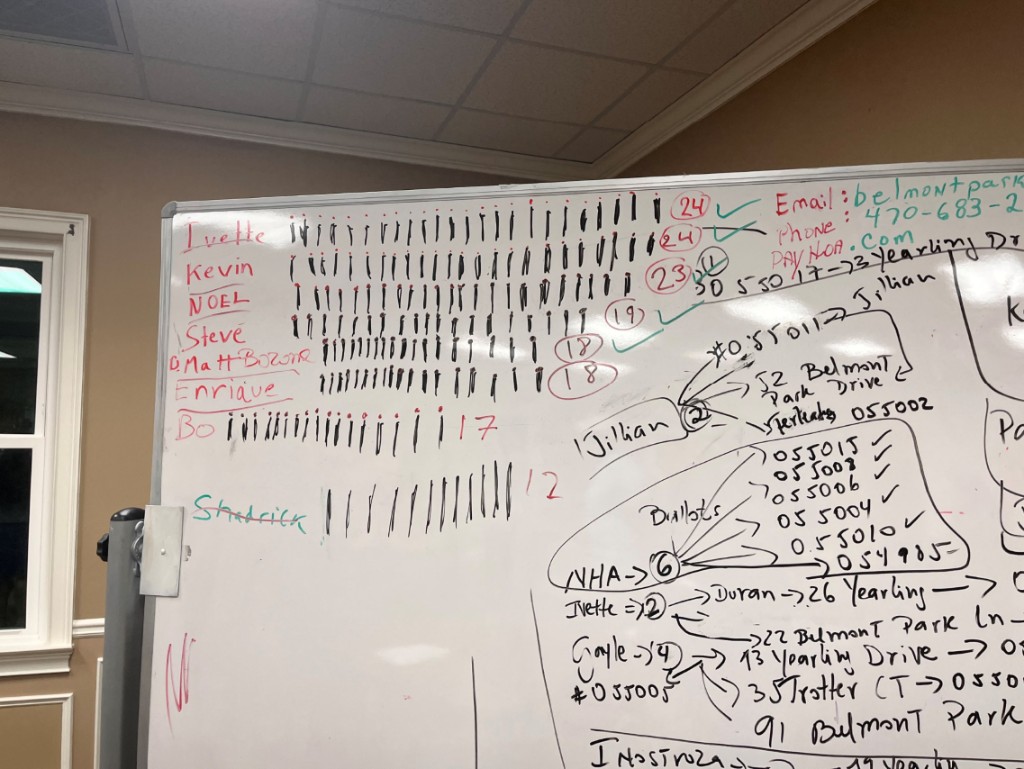 Ivette 24 ✓
Kevin 24 ✓
NOEL 23 ✓
Steve 19 ✓
D. Matt Bozork 18 ✓
Enrique 18
Bo 17
Shedrick 12
Email: belmontpark
Phone: 470-683-2
PAVHOA.com
055017→3 Yearling Dr
Jillian
#055011→
1 Jillian 2
52 Belmont
Park Drive
055002
Ballots
055015 ✓
055008 ✓
055006 ✓
055004 ✓
055010 ✓
054985
NHA→6
Ivette⇒2 →Duran→26 Yearling→
→22 Belmont Park Ln
Gayle→4 →13 Yearling Drive→
#055005
→35 Trotter CT→0550
91 Belmont Park
Inostroza→